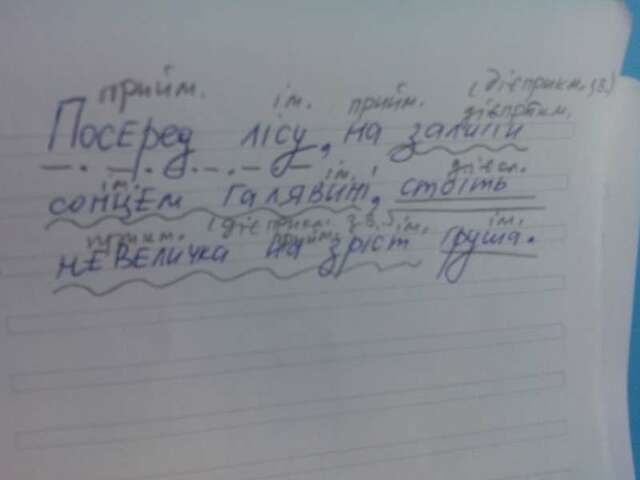 прийм. ім. прийм. (дієприкм. зв.)
дієпркм.
Посеред лісу, на залитій
ім. ім. дієсл.
сонцем галявині, стоїть
прикм. (дієприкм. зв.) прийм. ім. ім.
невеличка на зріст груша.